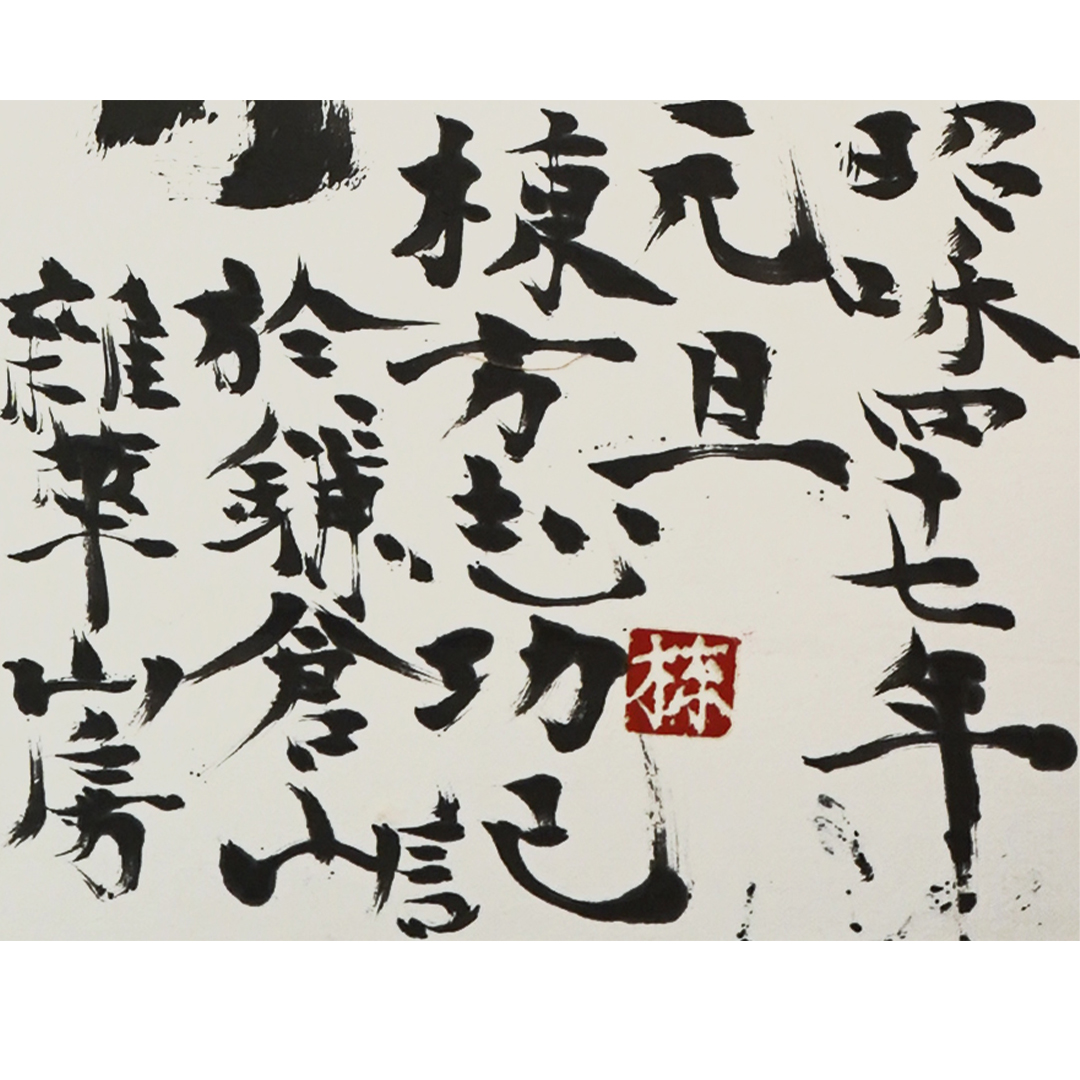 昭和四十七年
元旦
棟方志功記
於鎌倉山
雑華山房